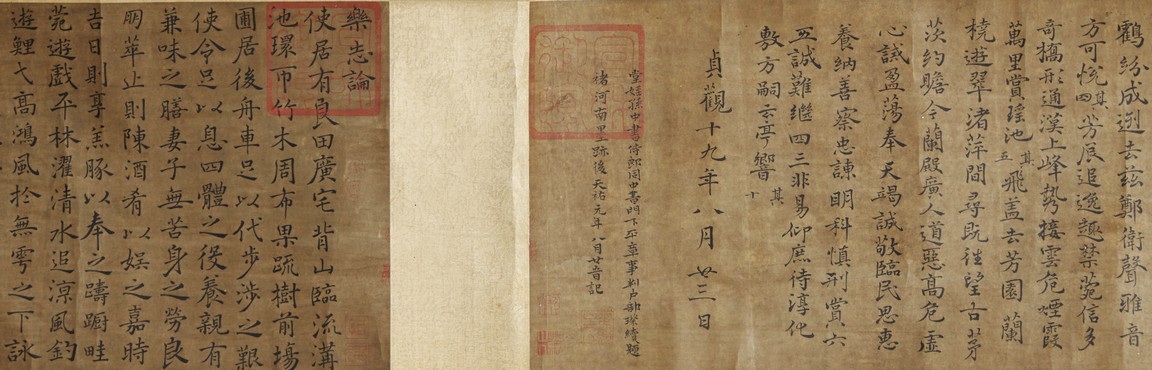 鶴紛成逊去兹鄭衛聲雅音
方可悦其四芳辰追逸趣禁菀信多
奇橋形通漢上峰勢接雲危煙霞
萬里賞瑶池其五飛盖去芳園蘭
橈遊翠渚萍間尋既往望古茅
茨約瞻今蘭殿廣人道惡高危虚
心誡盈蕩奉天竭誠敬臨民思惠
養納善察忠諫明科慎刑賞六
五誠難繼四三非易仰庶待淳化
敷方嗣云亭響其十
貞觀十九年八月廿三日
堂姪孫中書侍郎同中書門下平章事判户部璨續題
褚河南里跡後天祐元年八月廿旨記
樂志論
使居有良田廣宅背山臨流溝
池環帀竹木周布果蔬樹前場
圃居後舟車足以代步涉之艱
使令足以息四體之役養親有
兼味之膳妻子無苦身之勞良
朋萃止則陳酒肴以娱之嘉時
吉日則亨羔豚以奉之躊躕畦
菀遊戲平林濯清水追涼風釣
遊鯉弋高鴻風於無雩之下詠